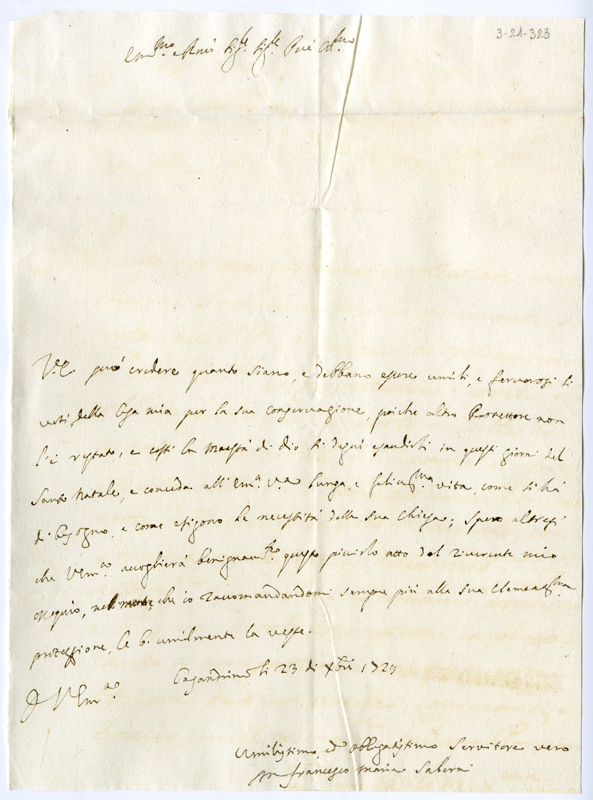 3-21-323
V. E. può credere quanto siano, e debbano essere umili, e fervorosi li
voti della Casa mia per la sua conservazione, poiche altro Protettore non
l'è restato; e così la Maestà di dio si degni esaudirli in questi giorni del
Santo Natale, e conceda all' Em.ª V.ª lunga, e felicis.ma vita, come si hà
di bisogno, e come esigono le necessità della sua Chiesa; spero altresi
che V Em.ª accoglierà benignam.te questo piccolo atto del riverente mio
ossequio, nel mentre che io racomandandomi sempre più alla sua clementis.ma
protezzione, le b. umilmente la veste.
Casandrino li 23 di Xbre 172
D V Em.ª
Umilissimo, ed obbligatissimo Servitore vero
francesco Maria